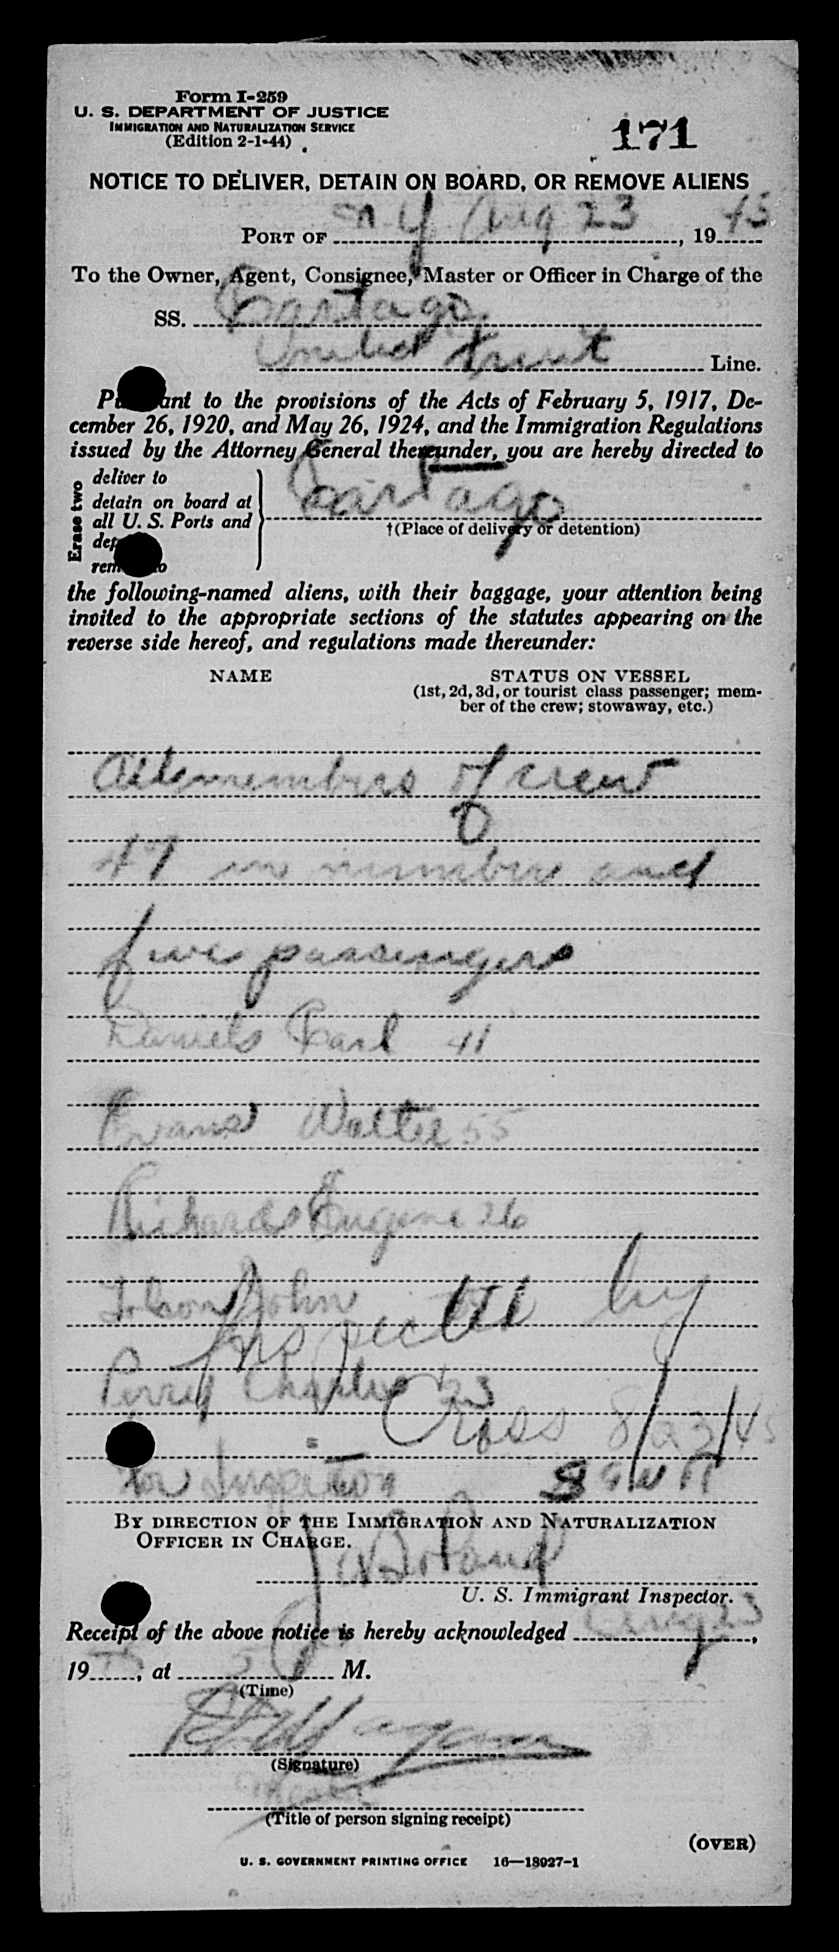 Form I-259
U. S. DEPARTMENT OF JUSTICE
IMMIGRATION AND NATURALIZATION SERVICE
(Edition 2-1-44)
171
NOTICE TO DELIVER, DETAIN ON BOARD, OR REMOVE ALIENS
PORT OF n.y Aug 23, 1945
To the Owner, Agent, Consignee, Master or Officer in Charge of the
SS. Cartago
United Fruit Line.
Pursuant to the provisions of the Acts of February 5, 1917, De-
cember 26, 1920, and May 26, 1924, and the Immigration Regulations
issued by the Attorney General thereunder, you are hereby directed to
Erase two
deliver to
detain on board at
all U. S. Ports and
remove to
Cartago
†(Place of delivery or detention)
the following-named aliens, with their baggage, your attention being
invited to the appropriate sections of the statutes appearing on the
reverse side hereof, and regulations made thereunder:
NAME
STATUS ON VESSEL
(1st, 2d, 3d, or tourist class passenger; mem-
ber of the crew; stowaway, etc.)
All members of crew
47 in number and
five passengers
Daniels Carl 41
Evans Walter 55
Richards Eugene 26
John
Inspected by
Perry Charles 23
Cross 8/23/45
for Inspection
BY DIRECTION OF THE IMMIGRATION AND NATURALIZATION
OFFICER IN CHARGE.
U. S. Immigrant Inspector.
Receipt of the above notice is hereby acknowledged Aug 23,
19, at M.
(Time)
(Signature)
(Title of person signing receipt)
(OVER)
U. S. GOVERNMENT PRINTING OFFICE 16—18027-1